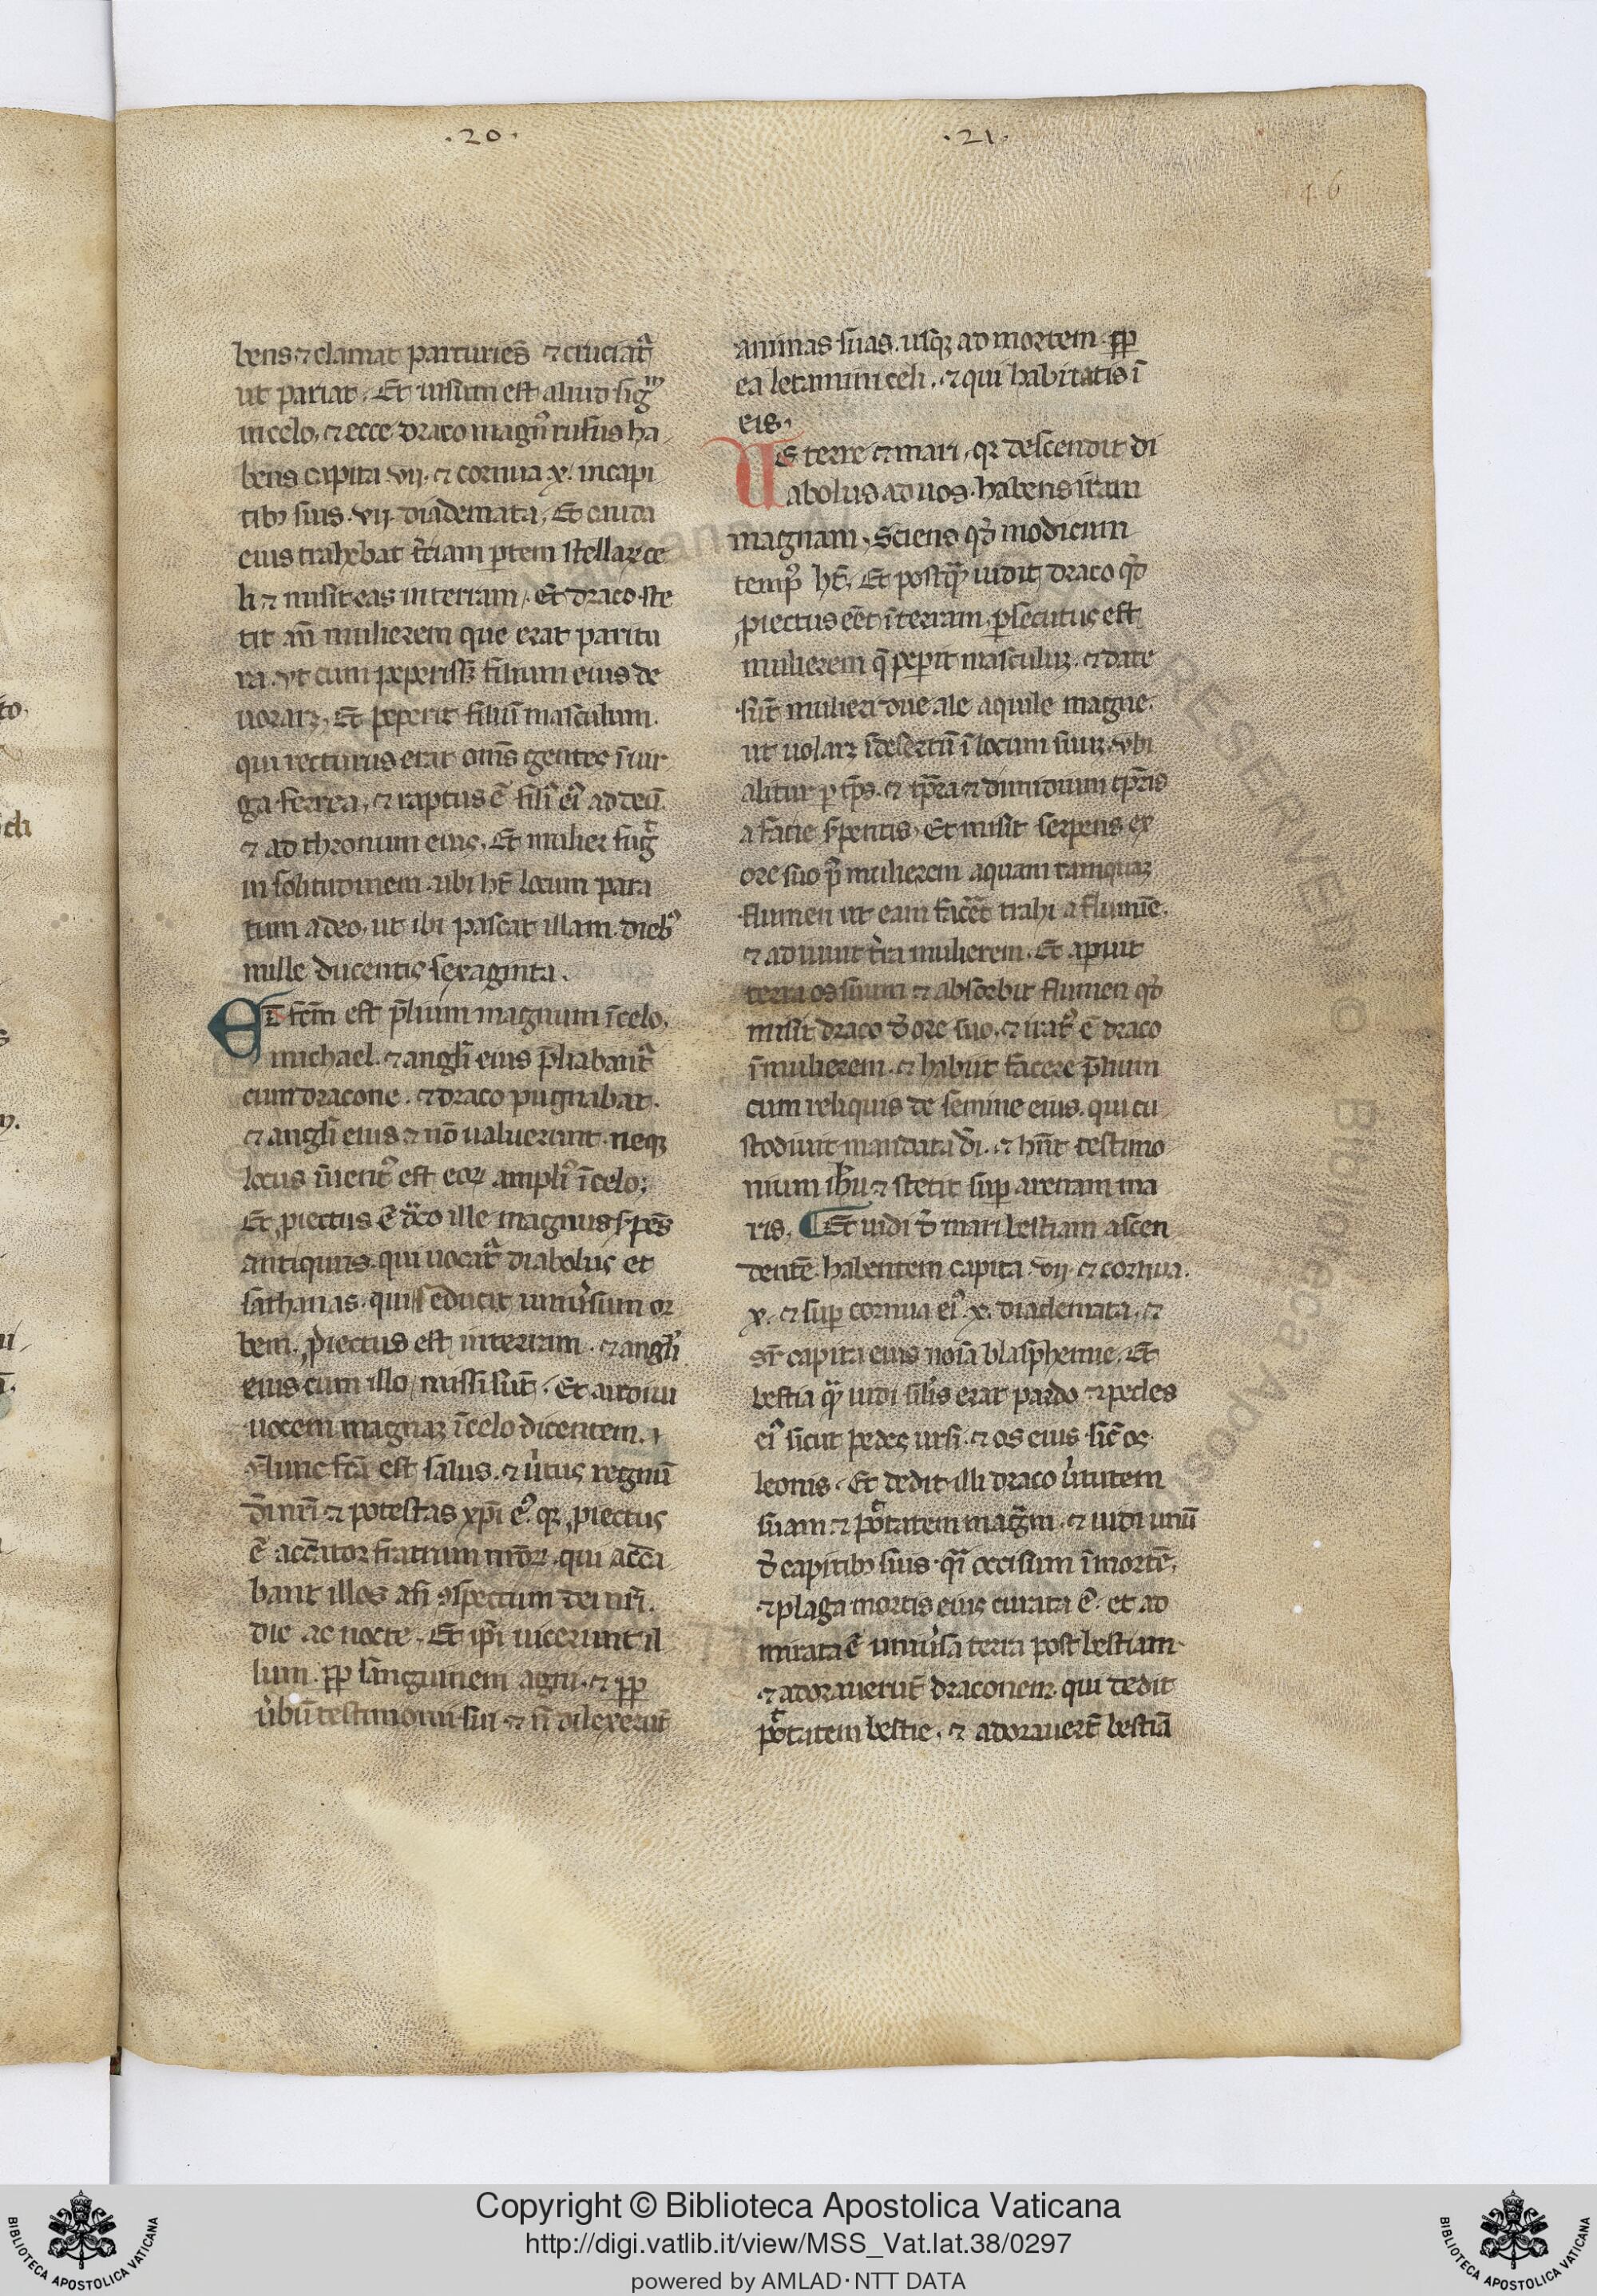 .20.
.21.
46
bens ⁊ clamat parturiẽs ⁊ cruciat᷑
ut pariat. Et uisum est aliud sigᵐ
in celo. ⁊ ecce draco magn᷒ rufus ha
bens capita .vij. ⁊ cornua .x. in capi
tib; suis .vij. diademata. Et cauda
eius trahebat t̉ciam ꝑtem stellaꝝ ce
li ⁊ misit eas in terram. Et draco ste
tit añ mulierem que erat paritu
ra. vt cum peperisꝫ filium eius de
uoraꝫ. Et peperit filiū masculum.
qui recturus erat om̃s gentes ĩ uir
ga ferrea. ⁊ raptus ẽ fili᷒ ei᷒ ad deũ
⁊ ad thronum eius. Et mulier fug̃
in solitudinem. ubi ht̃ locum para
tum a deo. ut ibi pascat illam dieb᷒
mille ducentis sexaginta.
Et fc̃m est p̃lium magnum ĩ celo.
michael. ⁊ angl̃i eius p̃liabant᷑
cum dracone. ⁊ draco pugnabat.
⁊ angl̃i eius ⁊ nõ ualuerunt. neqꝫ
locus ĩuent᷒ est eoꝝ ampli᷒ ĩ celo.
Et ꝓiectus ẽ dᵃco ille magnus ẜpẽs
antiquus. qui uocat᷑ diabolus et
sathanas. qui seducit uniũsum or
bem. ꝓiectus est in terram. ⁊ angl̃i
eius cum illo missi sũt. Et audiui
uocem magnaꝫ ĩ celo dicentem.
Nunc fc̃a est salus. ⁊ ũtus ⁊ regnũ
dĩ nr̃i ⁊ potestas xp̃i e᷒. qꝛ ꝓiectus
ẽ acc̃ator fratrum nr̃oꝝ. qui acc̃a
bant illos añ ꝯspectum dei nr̃i.
die ac nocte. Et ip̃i uicerunt il
lum. ꝓp̃ sanguinem agni. ⁊ ꝓp̃
ũbũ testimonii sui. ⁊ ñ dilexerũt
animas suas. usqꝫ ad mortem. ꝓp̃
ea letamini celi. ⁊ qui habitatis ĩ
eis.
Ue terre ⁊ mari. qꝛ descendit di
abolus ad uos. habens iram
magnam. Sciens qđ modicum
temp᷒ ht̃. Et postqᵃ̃ uidit draco qđ
ꝓiectus eẽt ĩ terram. ꝑsecutus est
mulierem q̃ peperit masculuꝫ. ⁊ date
sũt mulieri due ale aquile magne.
ut uolaꝫ ĩ desertũ ĩ locum suuꝫ. vbi
alitur ꝑ tp̃s. ⁊ tp̃ra ⁊ dimidium tp̃ris
a facie ẜpentis. Et misit serpens ex
ore suo p᷒ mulierem aquam tamquaꝫ
flumen ut eam facẽt trahi a flumĩe.
⁊ adiuuit t̉ra mulierem. Et apuit
terra os suum ⁊ absorbit flumen qđ
misit draco đ ore suo. ⁊ irat᷒ ẽ draco
ĩ mulierem. ⁊ habuit facere p̃lium
cum reliquis de semine eius. qui cu
stodiunt mandata dĩ. ⁊ hñt testimo
nium ih̃u ⁊ stetit suꝑ arenam ma
ris. ¶ Et uidi đ mari bestiam ascen
dentẽ. habentem capita .vij. ⁊ cornua.
x. ⁊ suꝑ cornua ei᷒ .x. diademata. ⁊
sr̃ capita eius noĩa blasphemie. Et
bestia qᵃ̃ uidi sil̃is erat pardo ⁊ pedes
ei᷒ sicut pedes ursi. ⁊ os eius sic̃ os
leonis. Et dedit illi draco ũtutem
suam ⁊ pᵒtatem magᵃ̃m. ⁊ uidi unũ
đ capitib; suis. qᵃ̃i occisum ĩ mortẽ.
⁊ plaga mortis eius curata ẽ. et ad
mirata ẽ uniũsa terra post bestiam.
⁊ adorauerũt draconem. qui dedit
pᵒtatem bestie. ⁊ adorauert̃ bestiã
Copyright © Biblioteca Apostolica Vaticana
http://digi.vatlib.it/view/MSS_Vat.lat.38/0297
powered by AMLAD·NTT DATA
BIBLIOTECA APOSTOLICA VATICANA
BIBLIOTECA APOSTOLICA VATICANA